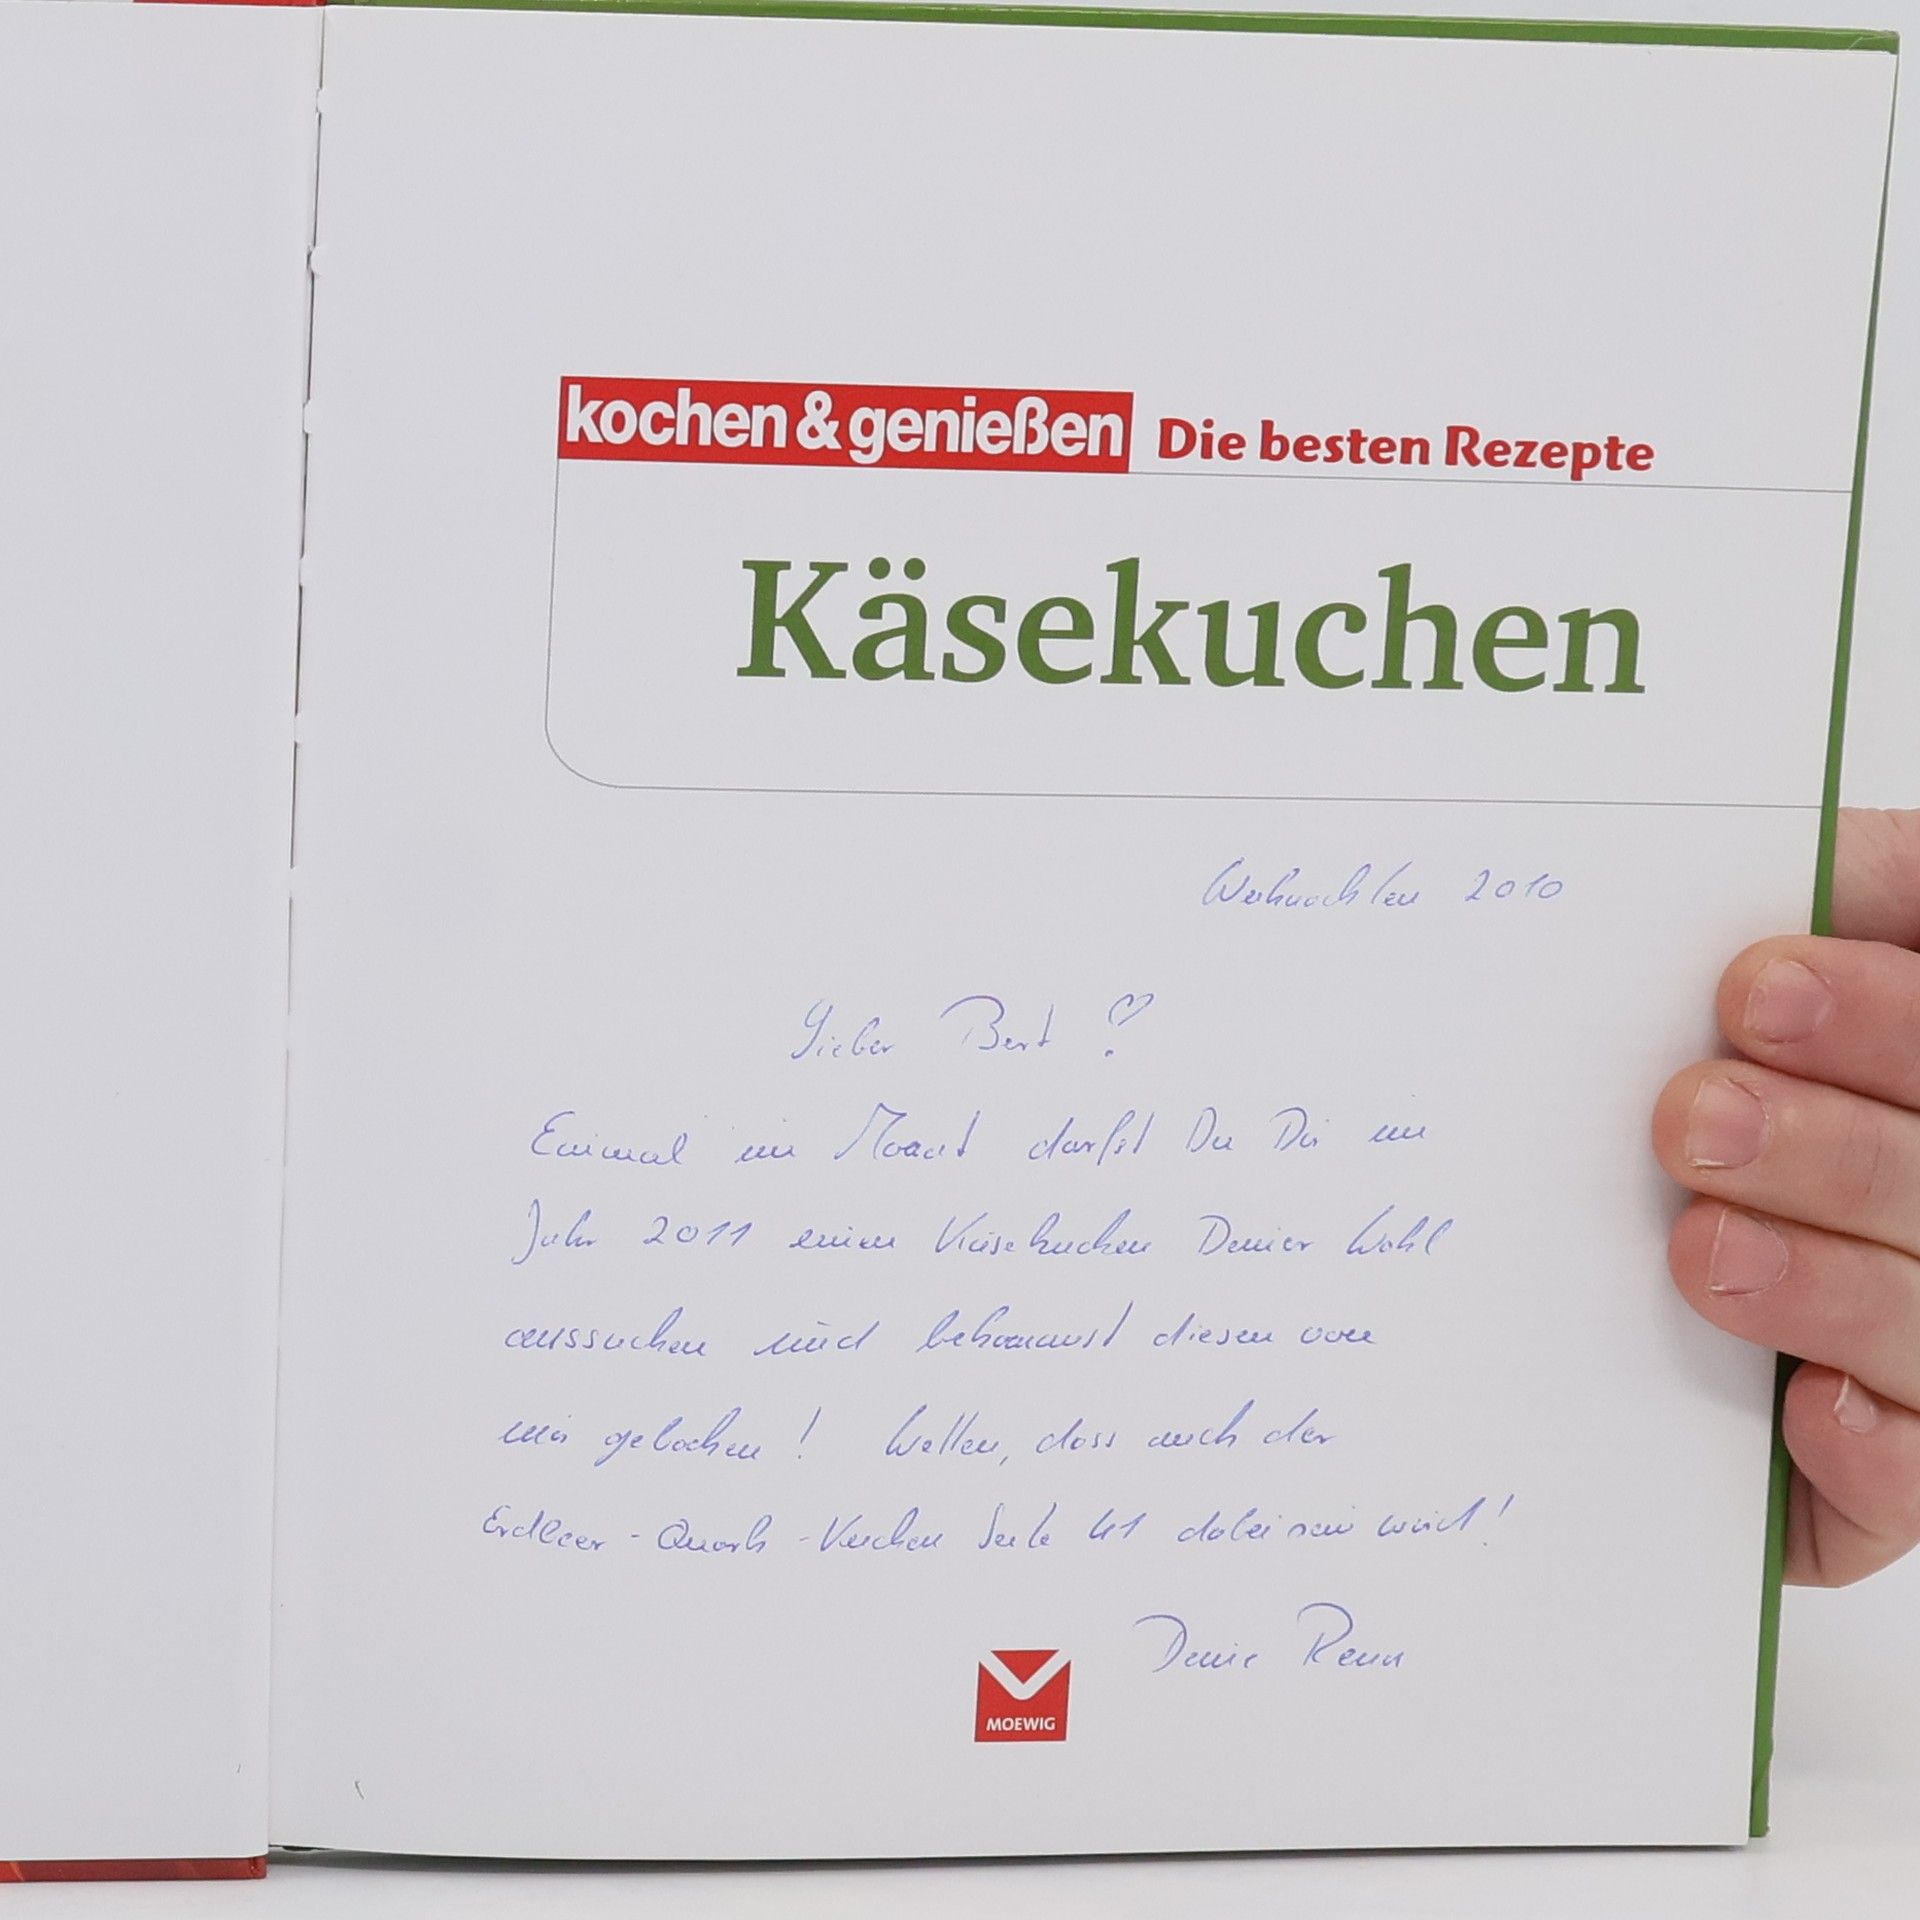 kochen & genießen Die besten Rezepte
Käsekuchen
Weihnachten 2010
Lieber Bert
Einmal im Monat darfst Du Dir im
Jahr 2011 einen Käsekuchen Deiner Wahl
aussuchen und bekommst diesen von
mir gebacken! Wetten, dass auch der
Erdbeer-Quark-Kuchen Seite 41 dabei sein wird!
Deine
MOEWIG